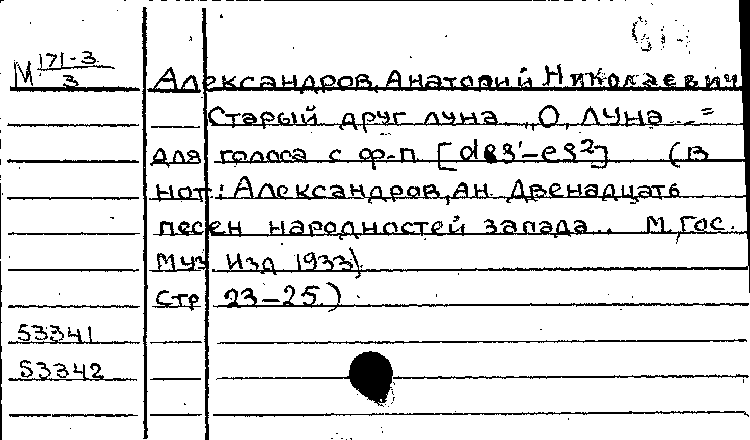 М 171-3/3 Александров, Анатолий Николаевич
Старый друг луна „О, луна..."=
для голоса с ф-п [des'-es²] (в
нот: Александров, Ан. Двенадцать
песен народностей запада.. М, Гос.
Муз Изд 1933)
Стр 23-25.)
53341
53342